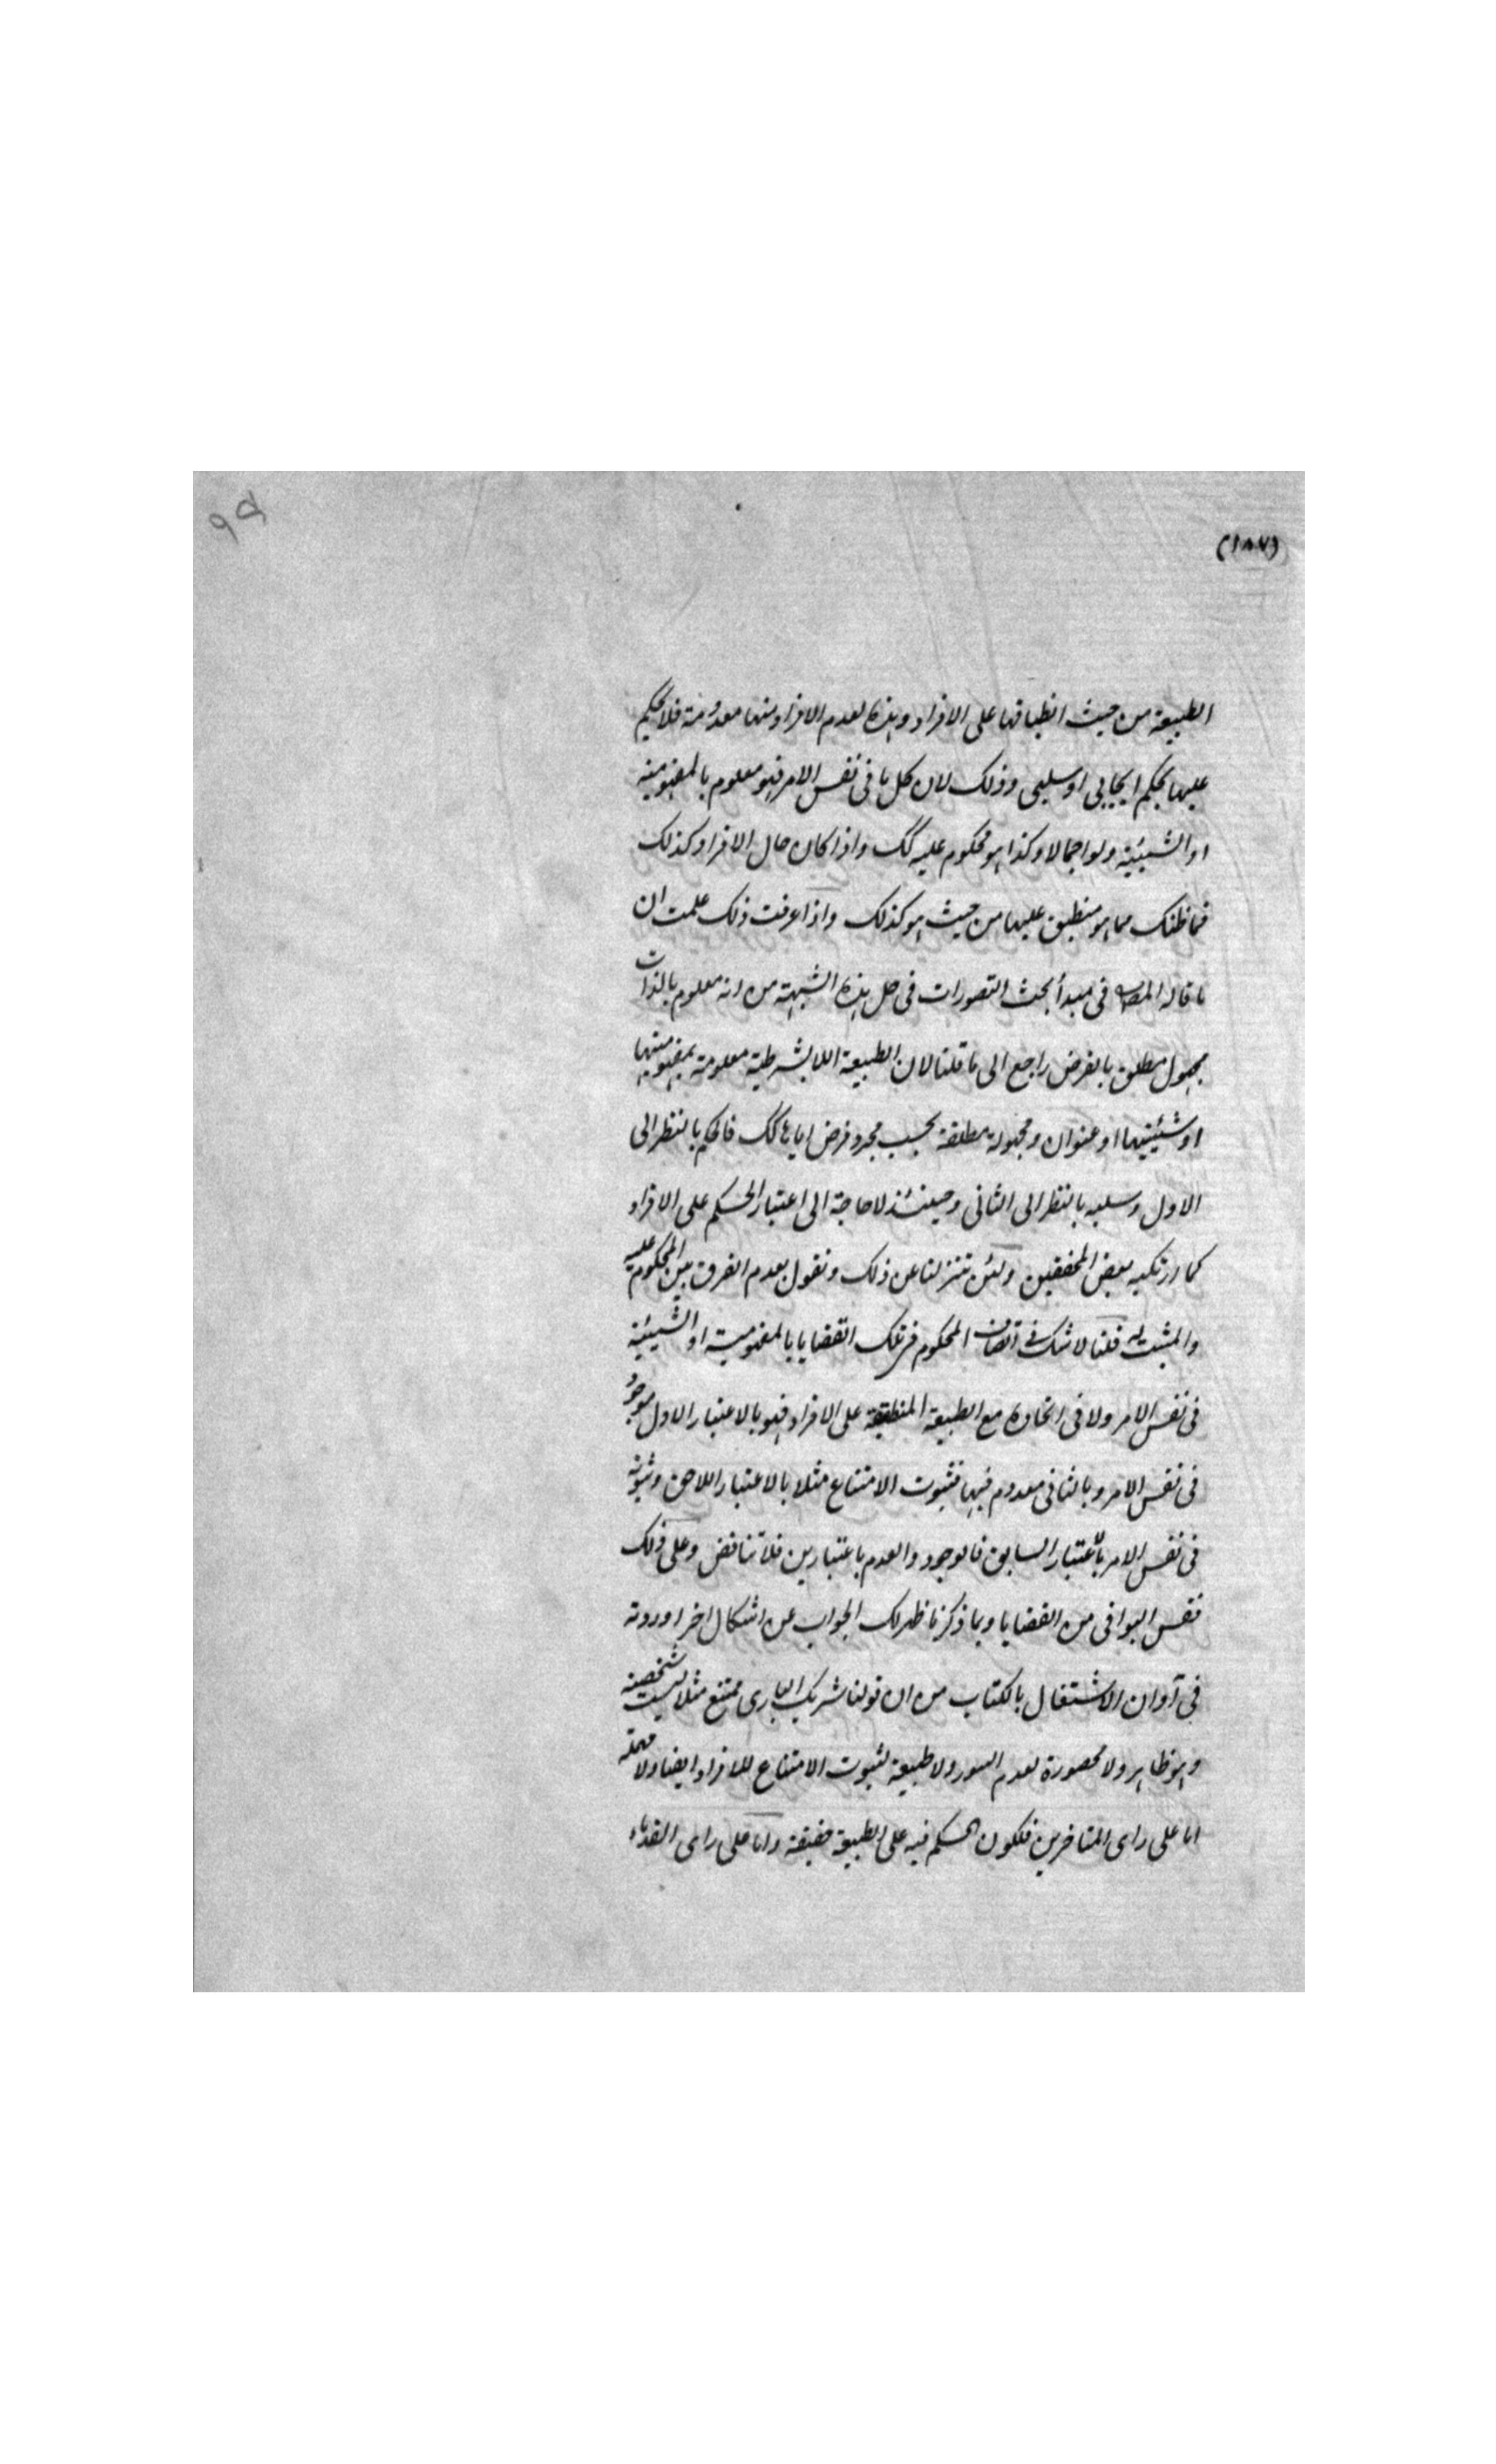 (١٨٧)
٩٥
الطبيعة من حيث انطباقها على الافراد وهذه لعدم الافراد منها معدومة فلا يحكم
عليها بحكم ايجابى او سلبى وذلك لان كل ما فى نفس الامر فهو معلوم بالمفهومية
او الشيئية ولو اجمالا وكذا هو محكوم عليه كك واذا كان حال الافراد كذلك
فما ظنك مما هو منطبق عليها من حيث هو كذلك واذا عرفت ذلك علمت ان
ما قاله المص فى مبدأ بحث التصورات فى حل هذه الشبهة من انه معلوم بالذات
مجهول مطلق بالفرض راجع الى ما قلنا لان الطبيعة اللا بشرطية معلومة بمفهوميتها
او شيئيتها او عنوان ومجهولة مطلقة بحسب مجرد فرض اياها كك فالحكم بالنظر الى
الاول وسلبه بالنظر الى الثانى وحينئذ لا حاجة الى اعتبار الحكم على الافراد
كما ارتكبه بعض المحققين ولئن تنزلنا عن ذلك ونقول بعدم الفرق بين المحكوم عليه
والمثبت له قلنا لا شك فى اتصاف المحكوم فى تلك القضايا بالمفهومية او الشيئية
فى نفس الامر ولا فى اتحاده مع الطبيعة المنطبقة على الافراد فهو بالاعتبار الاول موجود
فى نفس الامر وبالثانى معدوم فيها فثبوت الامتناع مثلا بالاعتبار اللاحق وثبوته
فى نفس الامر بالاعتبار السابق فالوجود والعدم باعتبارين فلا تناقض وعلى ذلك
فقس البواقى من القضايا وبما ذكرنا ظهر لك الجواب عن اشكال اخر اوردته
فى آوان الاشتغال بالكتاب من ان قولنا شريك البارى ممتنع مثلا ليست شخصية
وهو ظاهر ولا محصورة لعدم السور ولا طبيعة لثبوت الامتناع للافراد ايضا ولا مهملة
اما على راى المتاخرين فلكون الحكم فيه على الطبيعة حقيقة واما على راى القدماء